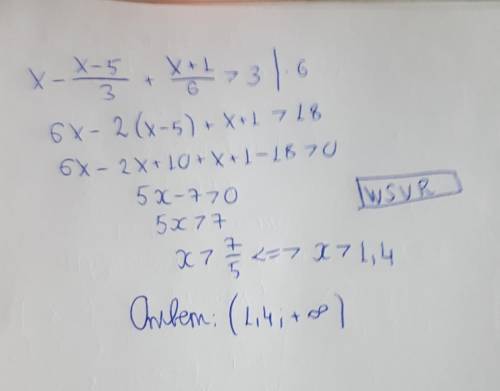 x - \frac{x-5}{3} + \frac{x+1}{6} > 3 | · 6
6x - 2(x-5) + x+1 > 18
6x - 2x + 10 + x + 1 - 18 > 0
5x - 7 > 0
WSVR
5x > 7
x > \frac{7}{5} <=> x > 1,4
Ответ: (1,4; +∞)